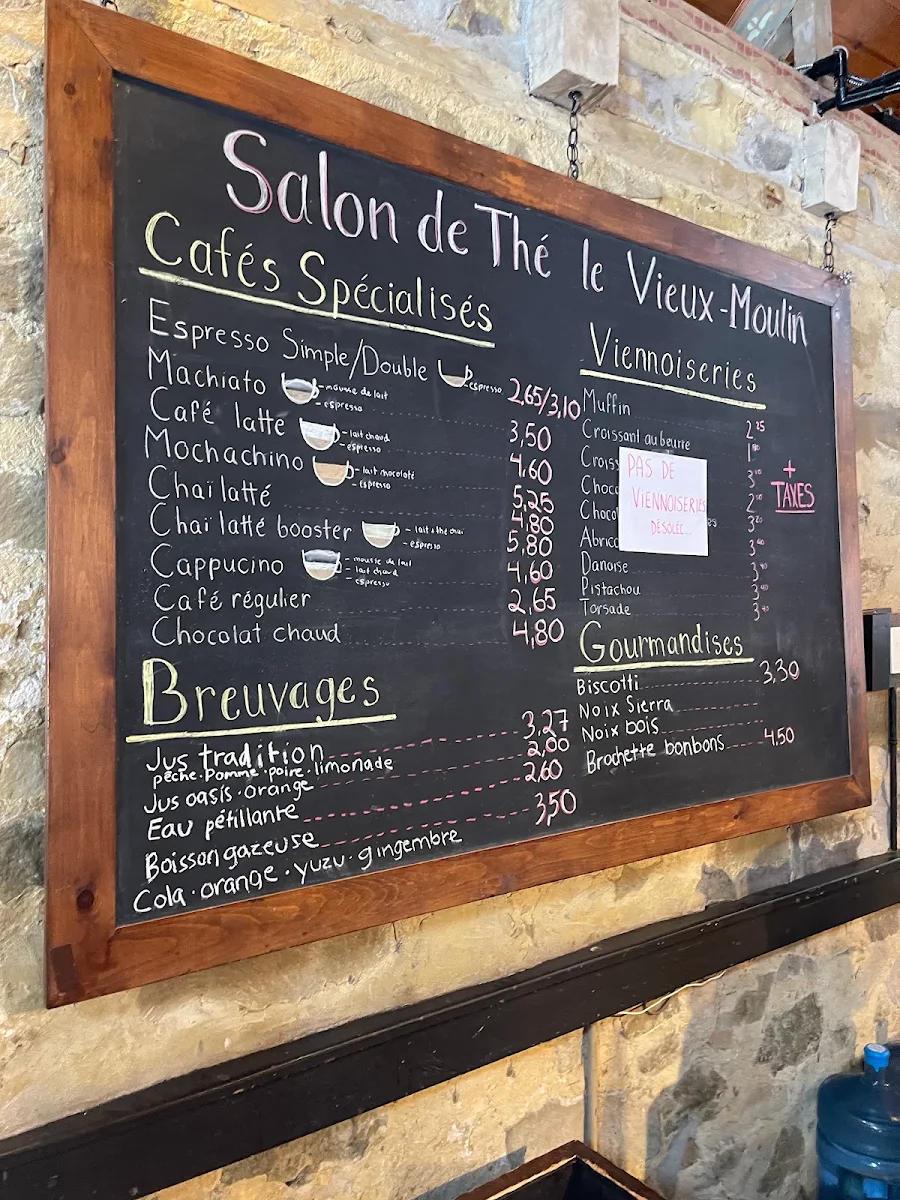 Salon de Thé le Vieux-Moulin
Cafés Spécialisés
Espresso Simple/Double -espresso 2,65/3,10
Machiato -mousse de lait 3,50
-espresso
Café latte -lait chaud 4,60
-espresso
Mochachino -lait mocolaté 5,25
-espresso
Chaï latté 4,80
Chaï latté booster -lait thé chai 5,80
-espresso
Cappucino -mousse de lait 4,60
-lait chaud
espresso
Café régulier 2,65
Chocolat chaud 4,80
Breuvages
Jus tradition 3,27
pêche·Pomme·poire·limonade 2,00
Jus oasis·orange 2,60
Eau pétillante 3,50
Boisson gazeuse
Cola·orange·yuzu·gingembre
Viennoiseries
Muffin 2 25
Croissant au beurre
Crois 3
Choc 2
Choco es 3 20
Abrico 3
Danoise 3
Pistachou 3
Torsade 3
PAS DE
VIENNOISERIES
DÉSOLÉ...
+
TAXES
Gourmandises
Biscotti 3,30
Noix Sierra
Noix bois
Brochette bonbons 4,50